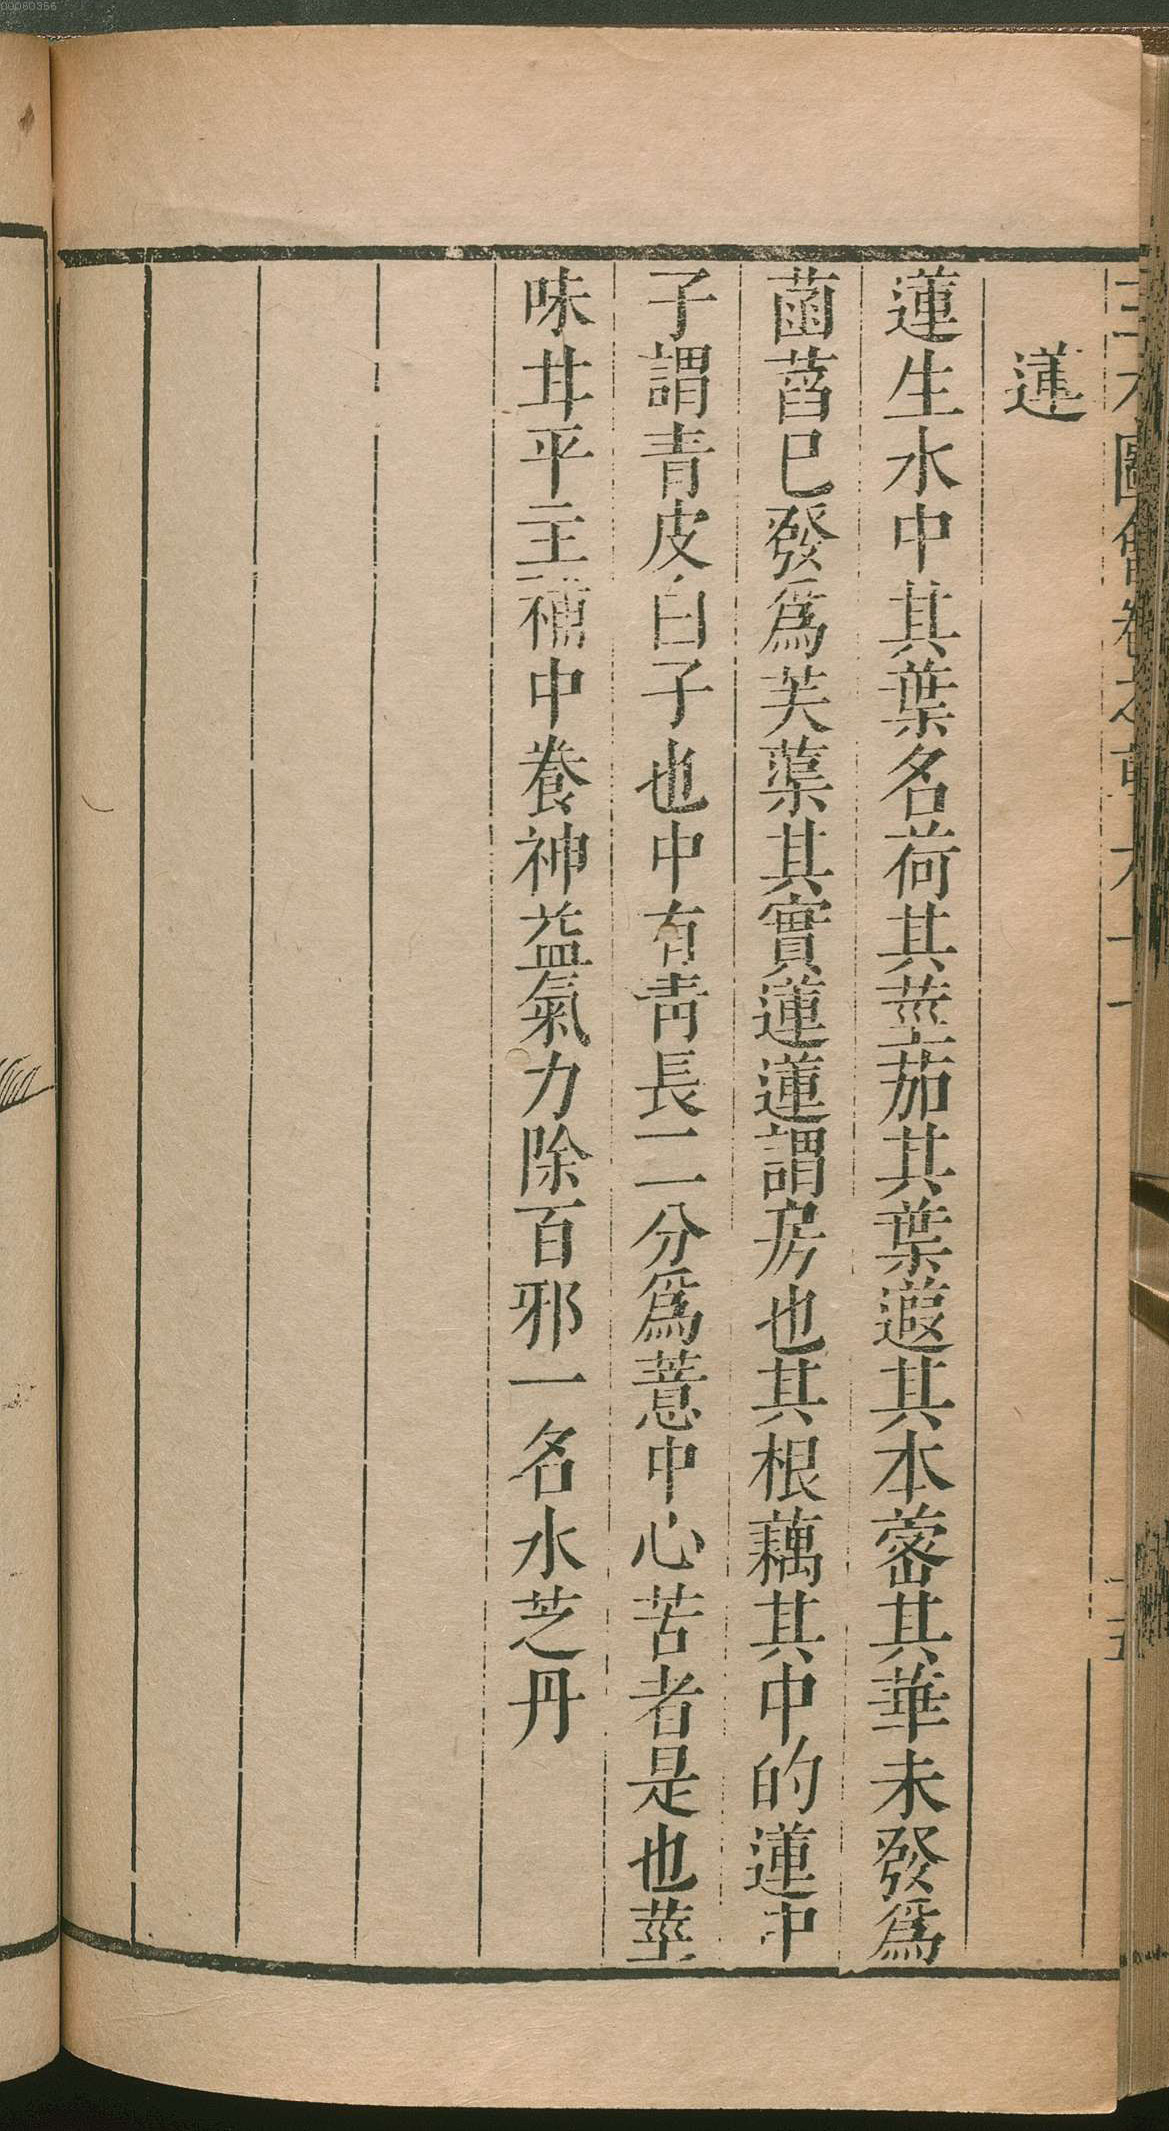 蓮
蓮生水中其葉名荷其莖茄其葉蕸其本蔤其華未發爲
菡萏已發爲芙蕖其實蓮蓮謂房也其根藕其中的蓮中
子謂青皮白子也中有青長二分爲薏中心苦者是也莖
味甘平主補中養神益氣力除百邪一名水芝丹
00080356